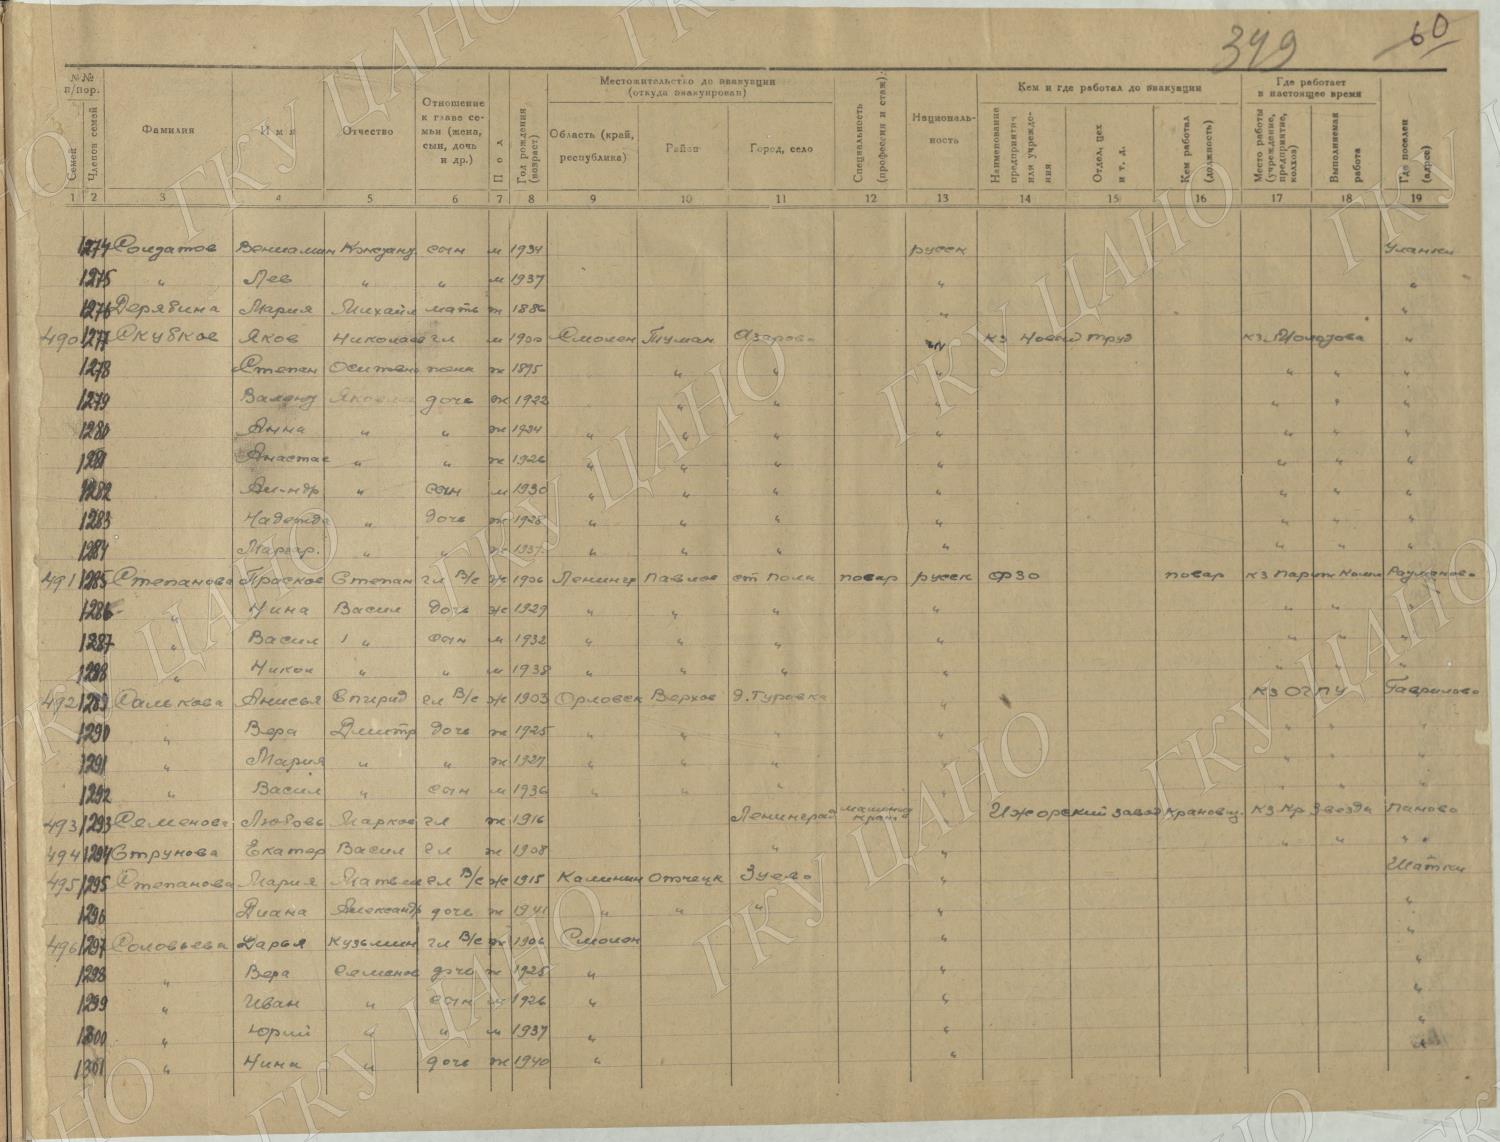 349 60
№№ п/пор.
Семей
Членов семей
Фамилия
Имя
Отчество
Отношение к главе семьи (жена, сын, дочь и др.)
Пол
Год рождения (возраст)
Местожительство до эвакуации (откуда эвакуирован)
Область (край, республика)
Район
Город, село
Специальность (профессия и стаж)
Национальность
Кем и где работал до эвакуации
Наименование предприятия или учреждения
Отдел, цех и т. д.
Кем работал (должность)
Где работает в настоящее время
Место работы (учреждение, предприятие, колхоз)
Выполняемая работа
Где поселен (адрес)
1 2 3 4 5 6 7 8 9 10 11 12 13 14 15 16 17 18 19
1274 Солдатов Вениамин сын м 1934 русск
1275 " Лев " " м 1937 " "
1276 Дерябина Мария Михайл мать ж 1886 " "
490 1277 Яков Николаев гл м 1900 Смолен Туман Азарово " кз Новый труд кз. Молотова "
1278 Степан жена ж 1895 " " " " " "
1279 Валент Яковл дочь ж 1922 " " " " " "
1280 Анна " " ж 1924 " " " " " " "
1281 Анастас " " ж 1926 " " " " " " "
1282 Ал-ндр " сын м 1930 " " " " " " "
1283 Надежда " дочь ж 1928 " " " " " " "
1284 Маргар. " " ж " " " " " " "
491 1285 Степанова Прасков Степан гл в/с ж 1906 Ленингр Павлов ст Попа повар русск ФЗО повар кз Париж Комм
1286 " Нина Васил дочь ж 1929 " " " " " " "
1287 " Васил " сын м 1932 " " " " " " "
1288 " Никол " " м 1938 " " " " " " "
492 1289 Салькова Анисья Спирид гл в/с ж 1903 Орловск Верхов д. Гуровка " кз ОГПУ Гаврилово
1290 " Вера Дмитр дочь ж 1925 " " " " " " "
1291 " Мария " " ж 1927 " " " " " " "
1292 " Васил " сын м 1936 " " " " " " "
493 1293 Семенова Любовь Марков гл ж 1916 Ленинград машинист крана " Ижорский завод крановщ. кз Кр Звезда Паново
494 1294 Струнова Екатер Васил гл ж 1908 " " " " "
495 1295 Степанова Мария Матвеев гл в/с ж 1915 Калинин Зуево " Шатки
1296 Диана Александр дочь ж 1941 " " " " "
496 1297 Соловьева Дарья Кузьмин гл в/с ж 1906 Смолен " "
1298 " Вера Семенов дочь ж 1925 " " "
1299 " Иван " сын м 1926 " " "
1300 " Юрий " " м 1937 " " "
1301 " Нина " дочь ж 1940 " "
ГКУ ЦАНО